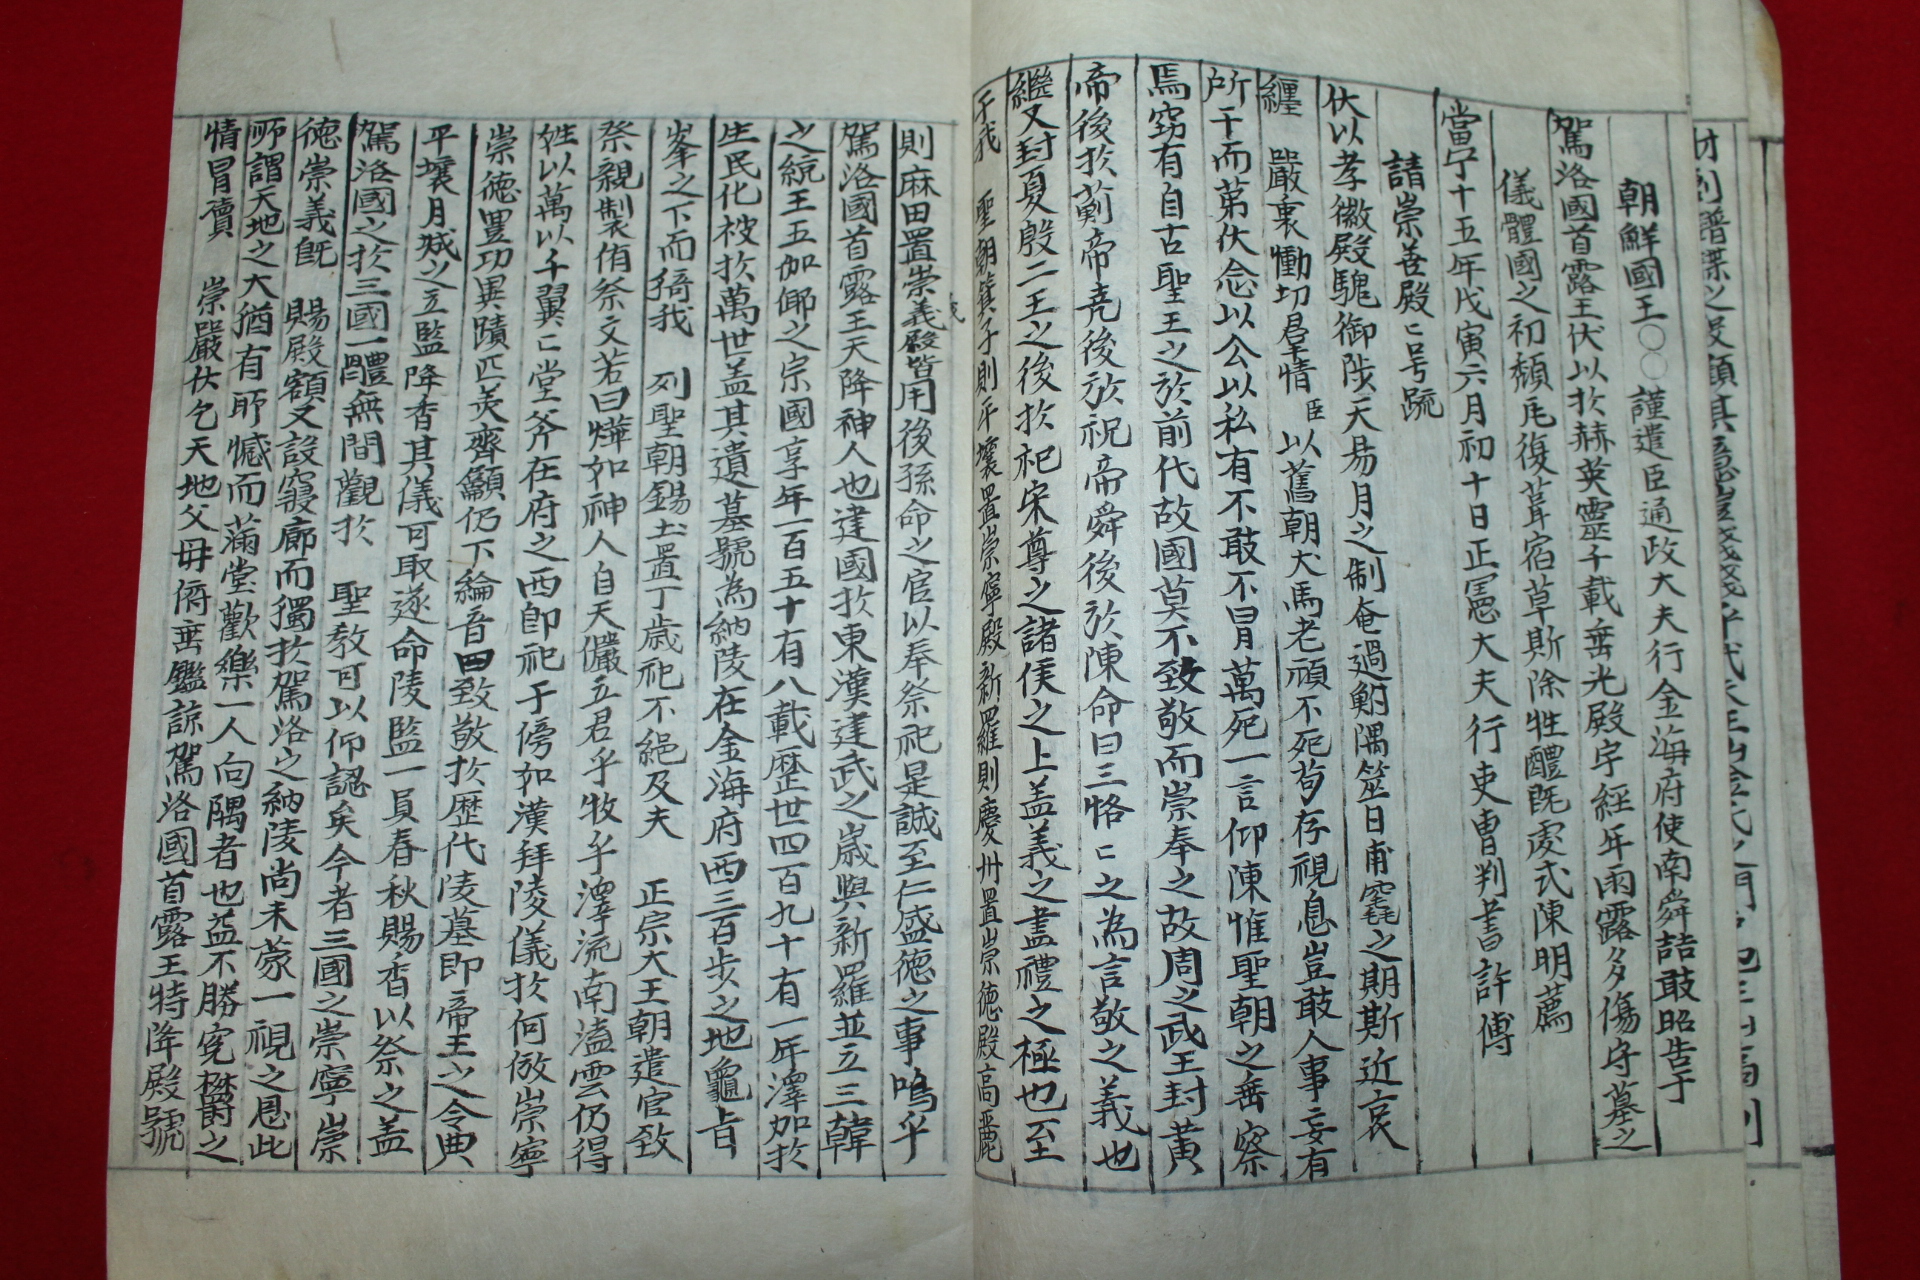 朝鮮國王○○謹遣臣通政大夫行金海府使南舜喆敢昭告于
駕洛國首露王伏以於赫英靈千載垂光殿宇經年雨露多傷守墓之
儀體國之初頹毛復葺宿草斯除牲醴旣虔式陳明薦
當宁十五年戊寅六月初十日正憲大夫行吏曹判書許傅
請崇善殿〻号疏
伏以孝徽殿騩御陟天易月之制奄過鮒隅筮日甫窀之期斯近哀
纏 嚴衷慟切君情臣以舊朝犬馬老頑不死苟存視息豈敢人事妄有
所干而第伏念以公以私有不敢不冒萬死一言仰陳惟聖朝之垂察
焉窃有自古聖王之於前代故國莫不致敬而崇奉之故周之武王封黃
帝後於薊帝堯後於祝帝舜後於陳命曰三恪〻之為言敬之義也
繼又封夏殷二王之後於祀宋尊之諸侯之上盖義之盡禮之極也至
于我 聖朝箕子則平壤置崇寧殿新羅則慶州置崇德殿高麗
則麻田置崇義殿皆用後孫命之官以奉祭祀是誠至仁盛德之事嗚乎
駕洛國首露王天降神人也建國於東漢建武之歲與新羅並立三韓
之統王五伽倻之宗國享年一百五十有八載歷世四百九十有一年澤加於
生民化被於萬世盖其遺墓號為納陵在金海府西三百步之地龜旨
峯之下而猗我 列聖朝錫土置丁歲祀不絕及夫 正宗大王朝遣官致
祭親製侑祭文若曰燁如神人自天儼立君乎牧乎澤流南溘雲仍得
姓以萬以千翼〻堂斧在府之西卽祀于傍如漢拜陵儀於何倣崇寧
崇德豊功異蹟匹美齊顯仍下綸音四致敬於歷代陵墓卽帝王之令典
平壤月城之立監降香其儀可取遂命陵監一員春秋賜香以祭之盖
駕洛國之於三國一體無間觀於 聖敎可以仰認矣今者三國之崇寧崇
德崇義旣 賜殿額又設寢廊而獨於駕洛之納陵尚未蒙一視之恩此
所謂天地之大猶有所憾而滿堂歡樂一人向隅者也益不勝寃欝之
情冒瀆 崇嚴伏乞天地父母俯垂鑑諒駕洛國首露王特降殿號